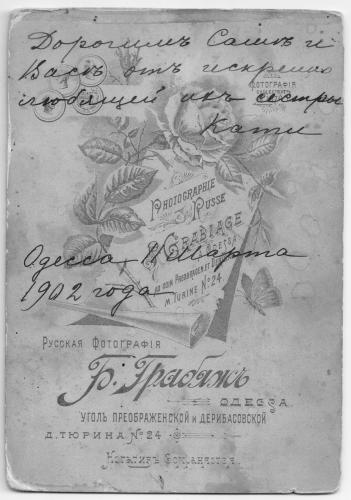 Дорогимъ Сашѣ и
Васѣ отъ искренно
любящей ихъ сестры
Кати
ФОТОГРАФІЯ
PHOTOGRAPHIE
RUSSE
GRABIAGE
ODESSA
M. TURINE № 24.
Одесса Марта
1902 года
РУССКАЯ ФОТОГРАФІЯ
Б. Грабяжъ
ОДЕССА
УГОЛЪ ПРЕОБРАЖЕНСКОЙ и ДЕРИБАСОВСКОЙ
Д. ТЮРИНА № 24